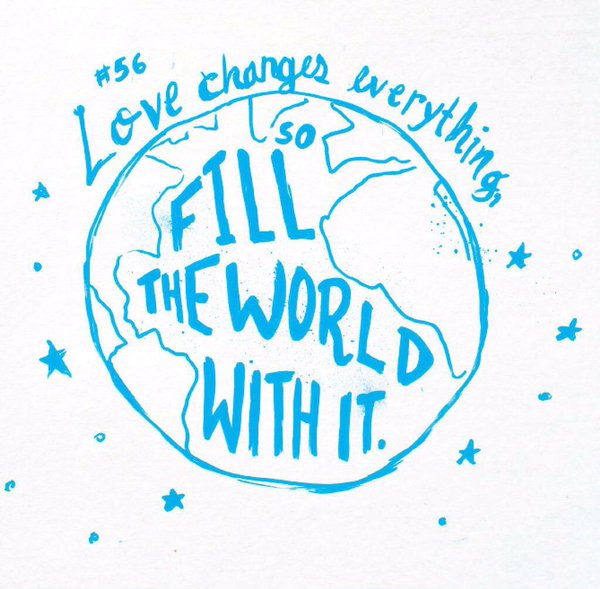 #56
Love changes everything,
SO
FILL
THE WORLD
WITH IT.